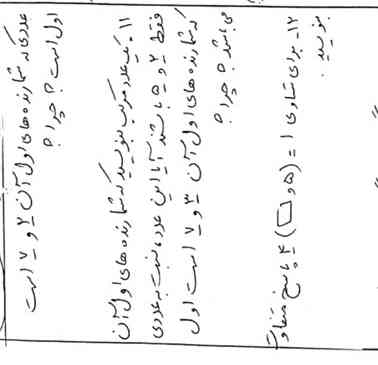 عددی که شمارنده های اول آن ۲ و ۷ است
اول است؟ چرا؟
۱۱- یک عدد مرکب بنویسید که شمارنده های اول آن
فقط ۲ و ۵ باشد آیا این عدد نسبت به عددی
که شمارنده های اول آن ۳ و ۷ است اول
می باشد؟ چرا؟
۱۲- برای تساوی ۱ = (۵ و □) ۴ پاسخ متفاوت
بنویسید.